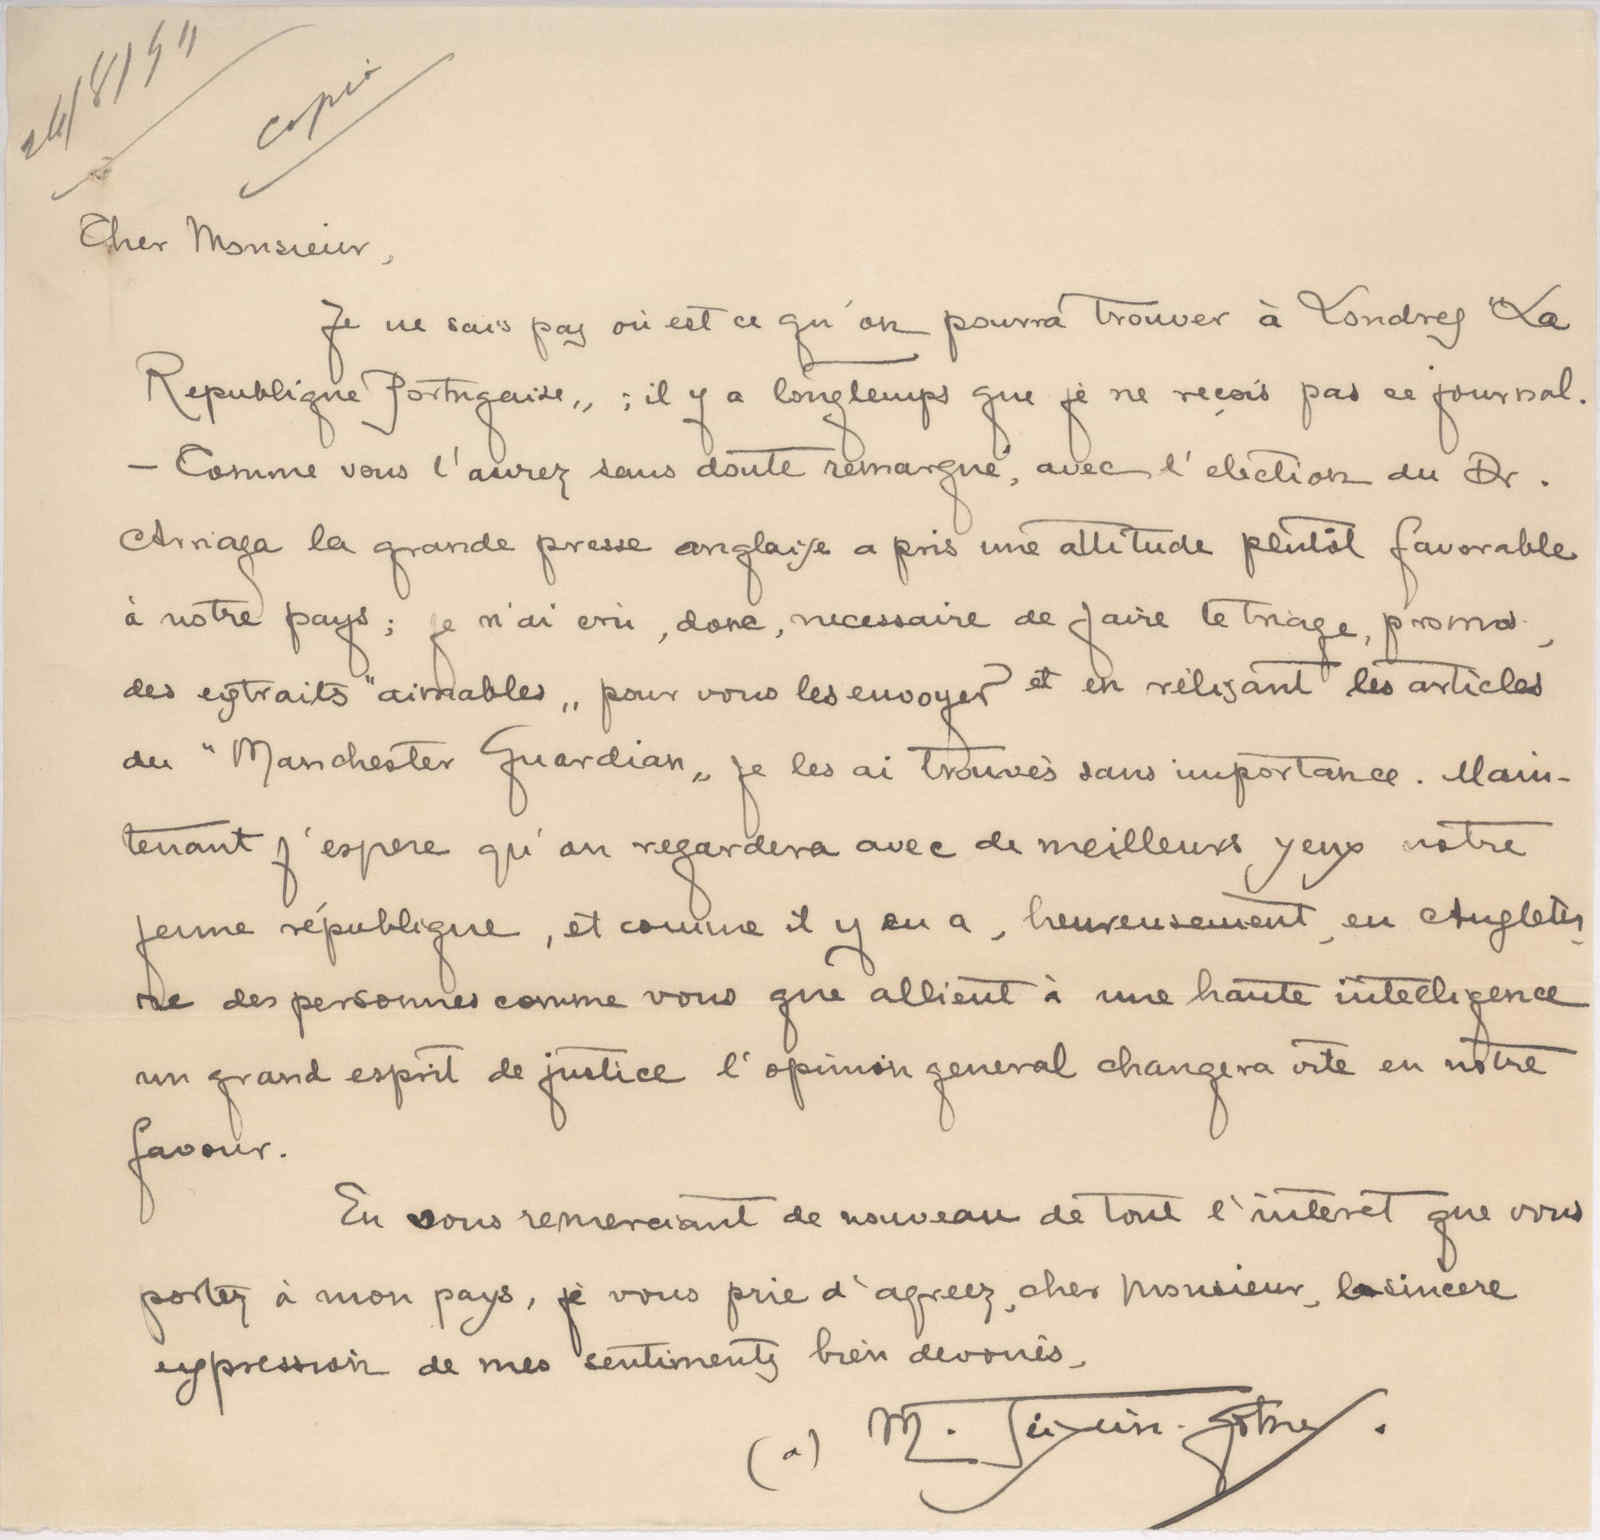 24/8/911
Copia
Cher Monsieur,
Je ne sais pas où est ce qu'on pourra trouver à Londres "La
Republique Portugaise„ ; il y a longtemps que je ne reçois pas ce journal.
— Comme vous l'aurez sans doute remarqué, avec l'election du Dr.
Arriaga la grande presse anglaise a pris une attitude plutôt favorable
à notre pays ; je n'ai cru, donc, necessaire de faire le triage, promis,
des extraits "aimables„ pour vous les envoyer et en rélisant les articles
du "Manchester Guardian„ je les ai trouvés sans importance. Main-
tenant j'espere qu'on regardera avec de meilleurs yeux notre
jeune république, et comme il y en a, heureusement, en Angleter-
re des personnes comme vous que allient à une haute intelligence
un grand esprit de justice l'opinion general changera vite en notre
favour.
En vous remerciant de nouveau de tout l'interêt que vous
portez à mon pays, je vous prie d'agreez, cher Monsieur, la sincere
expression de mes sentiments bien devoués,
(a) M. Teixeira-Gomes.